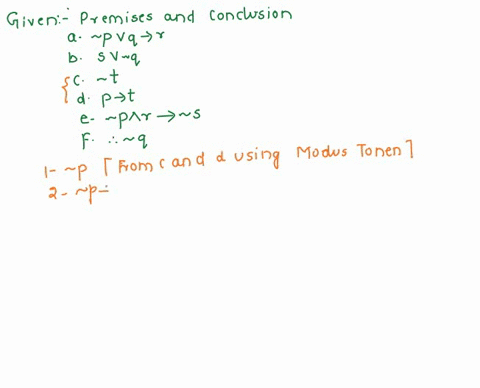 Given:- Premises and conclusion
a. ~p∨q→r
b. s∨~q
c. ~t
d. p→t
e. ~p∧r→~s
F. ∴~q
1- ~p [From c and d using Modus Tonen]
2- ~p-